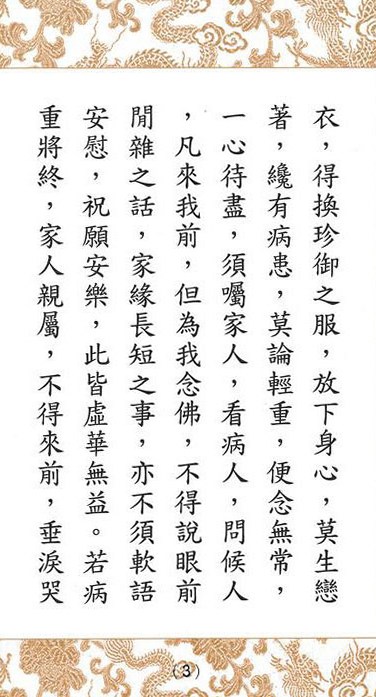 衣，得換珍御之服，放下身心，莫生戀
著，纔有病患，莫論輕重，便念無常，
一心待盡，須囑家人，看病人，問候人
，凡來我前，但為我念佛，不得說眼前
閒雜之話，家緣長短之事，亦不須軟語
安慰，祝願安樂，此皆虛華無益。若病
重將終，家人親屬，不得來前，垂淚哭
(3)